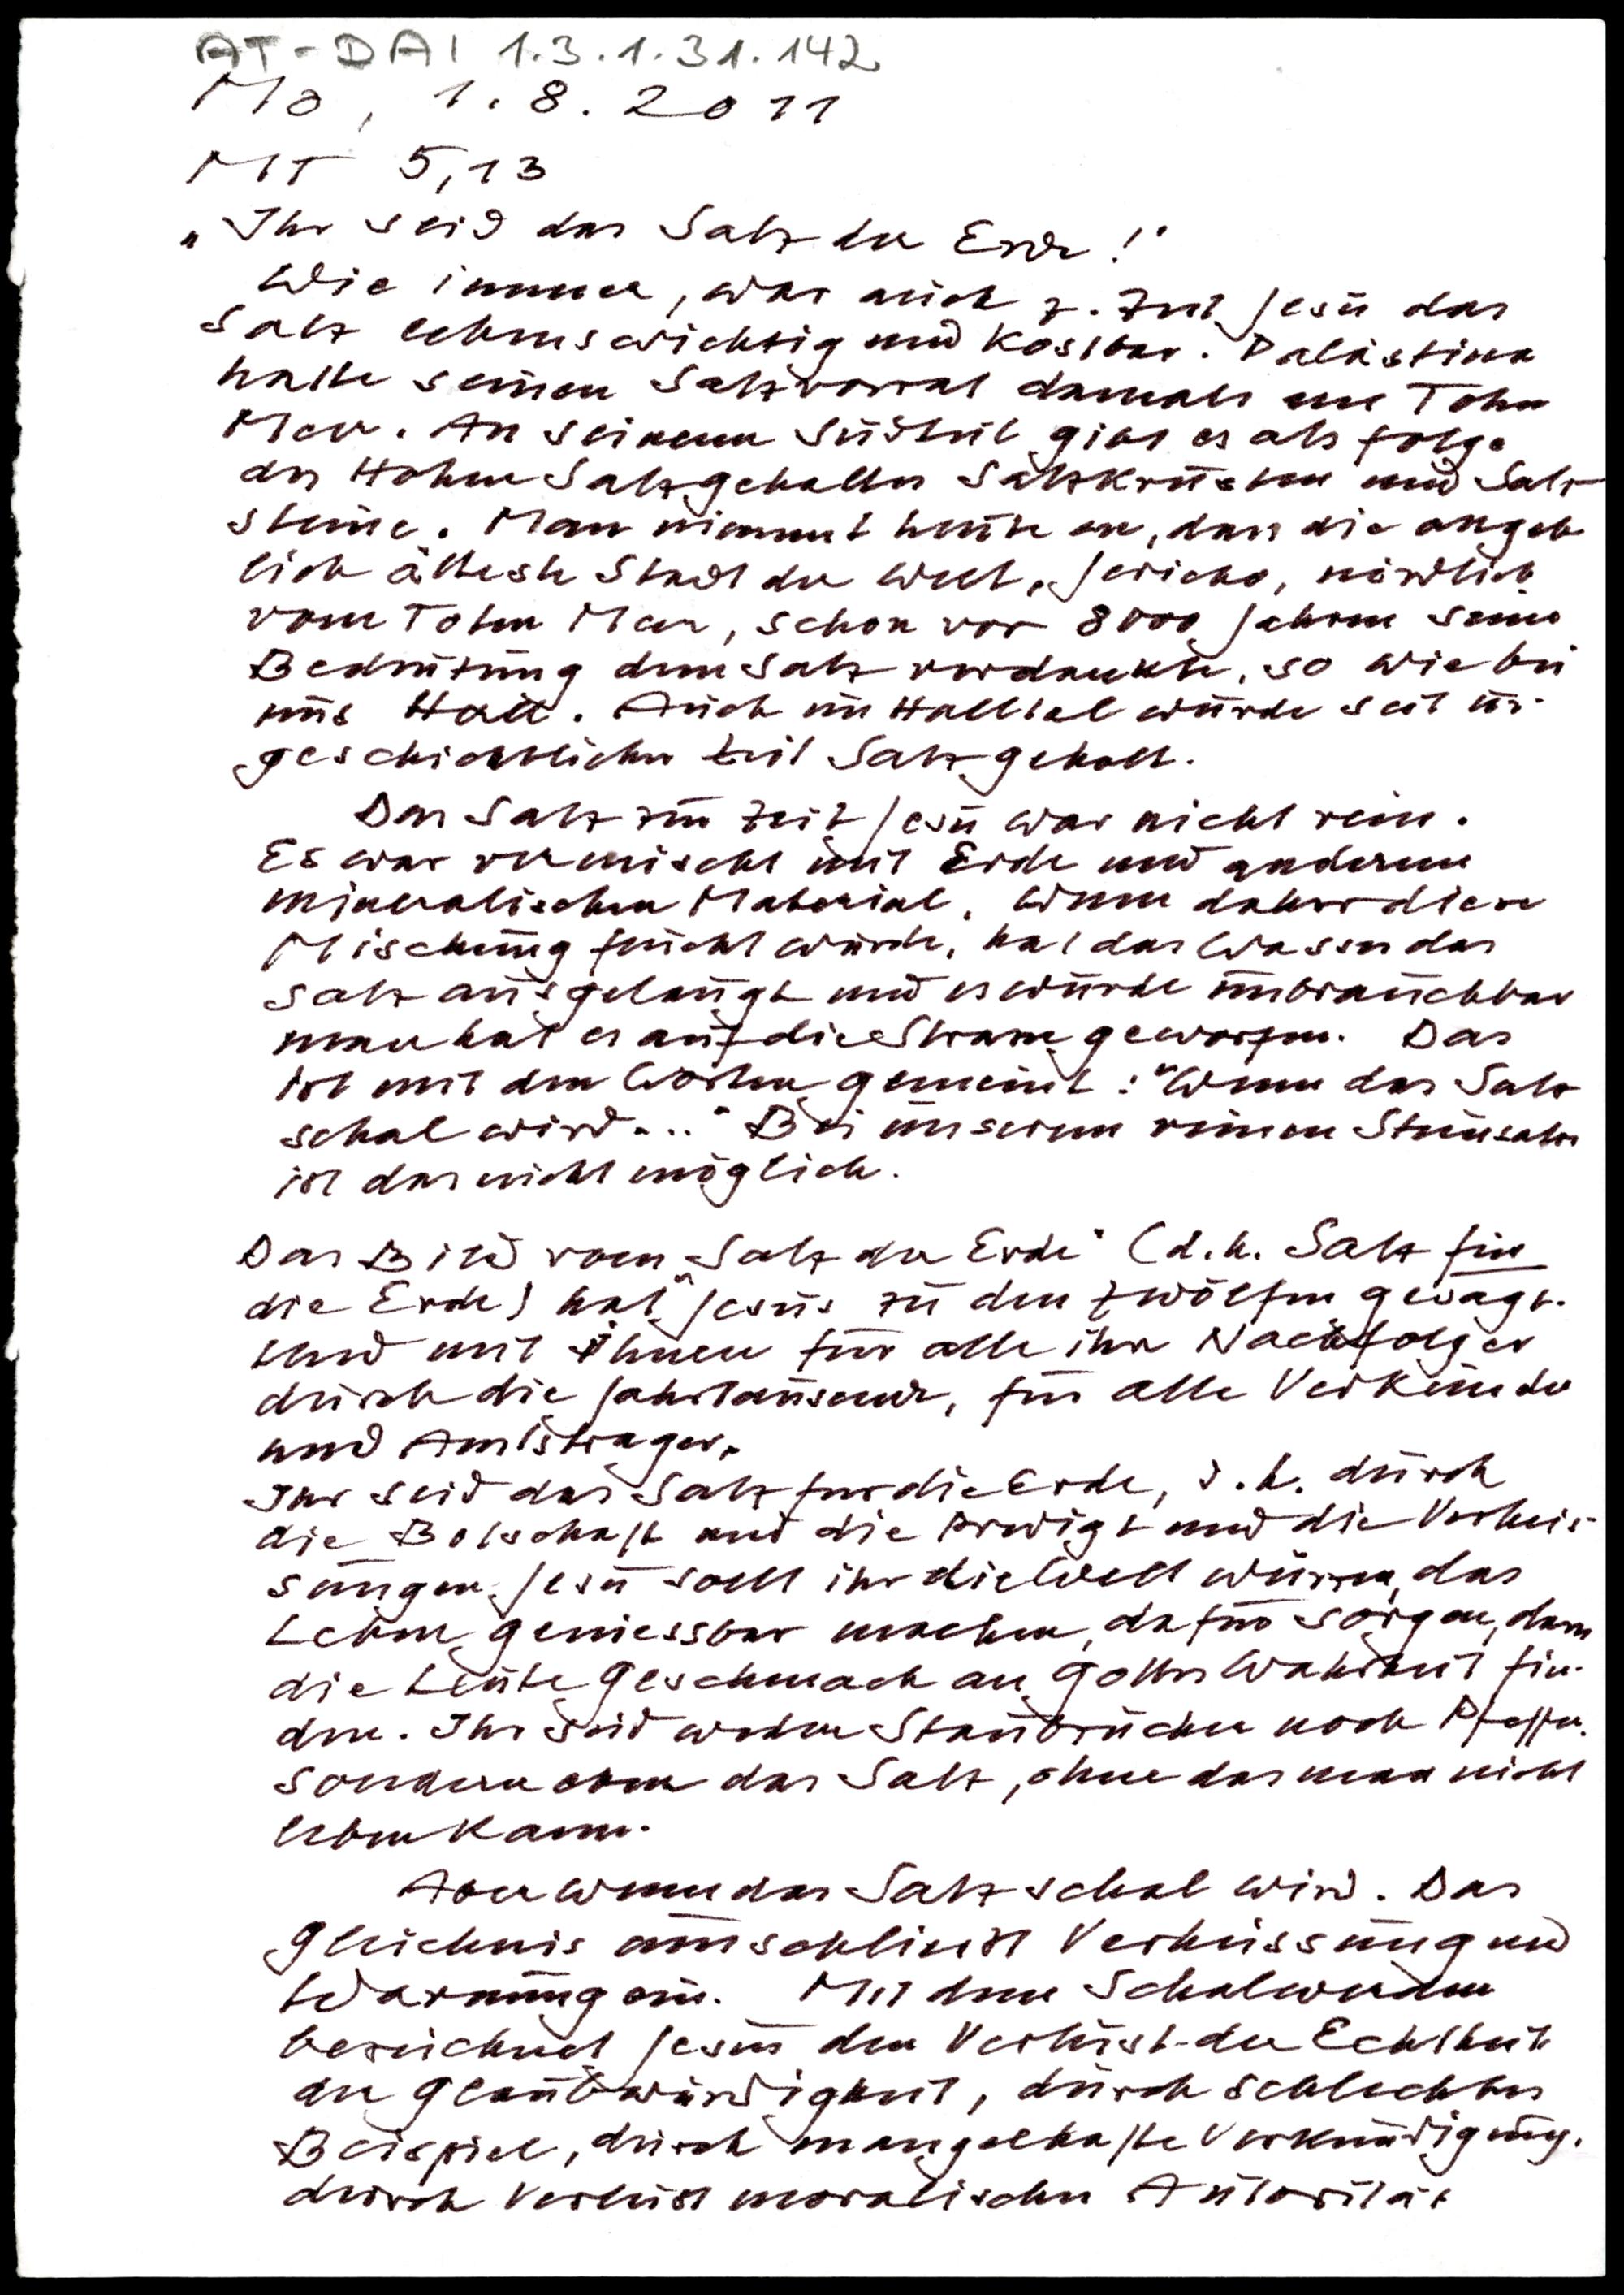 AT-DAI 1.3.1.31.142
Mo, 1.8.2011
MT 5,13
„Ihr seid das Salz der Erde!“
Wie immer, war auch z. Zeit Jesu das
Salz lebenswichtig und kostbar. Palästina
hatte seinen Salzvorrat damals am Toten
Meer. An seinem Südteil gibt es als Folge
des Hohen Salzgehaltes Salzkrusten und Salz
steine. Man nimmt heute an, dass die angeb
lich älteste Stadt der Welt, Jericho, nördlich
vom Toten Meer, schon vor 8000 Jahren seine
Bedeutung dem Salz verdankte, so wie bei
uns Hall. Auch im Halltal wurde seit ur-
geschichtlicher Zeit Salz geholt.
Das Salz zur Zeit Jesu war nicht rein.
Es war vermischt mit Erde und anderem
mineralischen Material. Wenn daher diese
Mischung feucht wurde, hat das Wasser das
Salz ausgelaugt und es wurde unbrauchbar
man hat es auf die Strasse geworfen. Das
ist mit den Worten gemeint: "Wenn das Salz
schal wird..." Bei unserem reinen Steinsalz
ist das nicht möglich.
Das Bild vom "Salz der Erde" (d.h. Salz für
die Erde) hat Jesus zu den Zwölfen gesagt.
Und mit ihnen für alle ihre Nachfolger
durch die Jahrtausende, für alle Verkünder
und Amtsträger.
Ihr seid das Salz für die Erde, d.h. durch
die Botschaft und die Predigt und die Verheis-
sungen Jesu sollt ihr die Welt würzen, das
Leben geniessbar machen, dafür sorgen, dass
die Leute Geschmack an Gottes Wahrheit fin-
den. Ihr seid weder Staubzucker noch Pfeffer.
Sondern eben das Salz, ohne das man nicht
leben kann.
Aber wenn das Salz schal wird. Das
Gleichnis umschliesst Verheissung und
Warnung ein. Mit dem Schalwerden
bezeichnet Jesus den Verlust der Echtheit
der Glaubwürdigkeit, durch schlechtes
Beispiel, durch mangelhafte Verkündigung,
durch Verlust moralischer Autorität